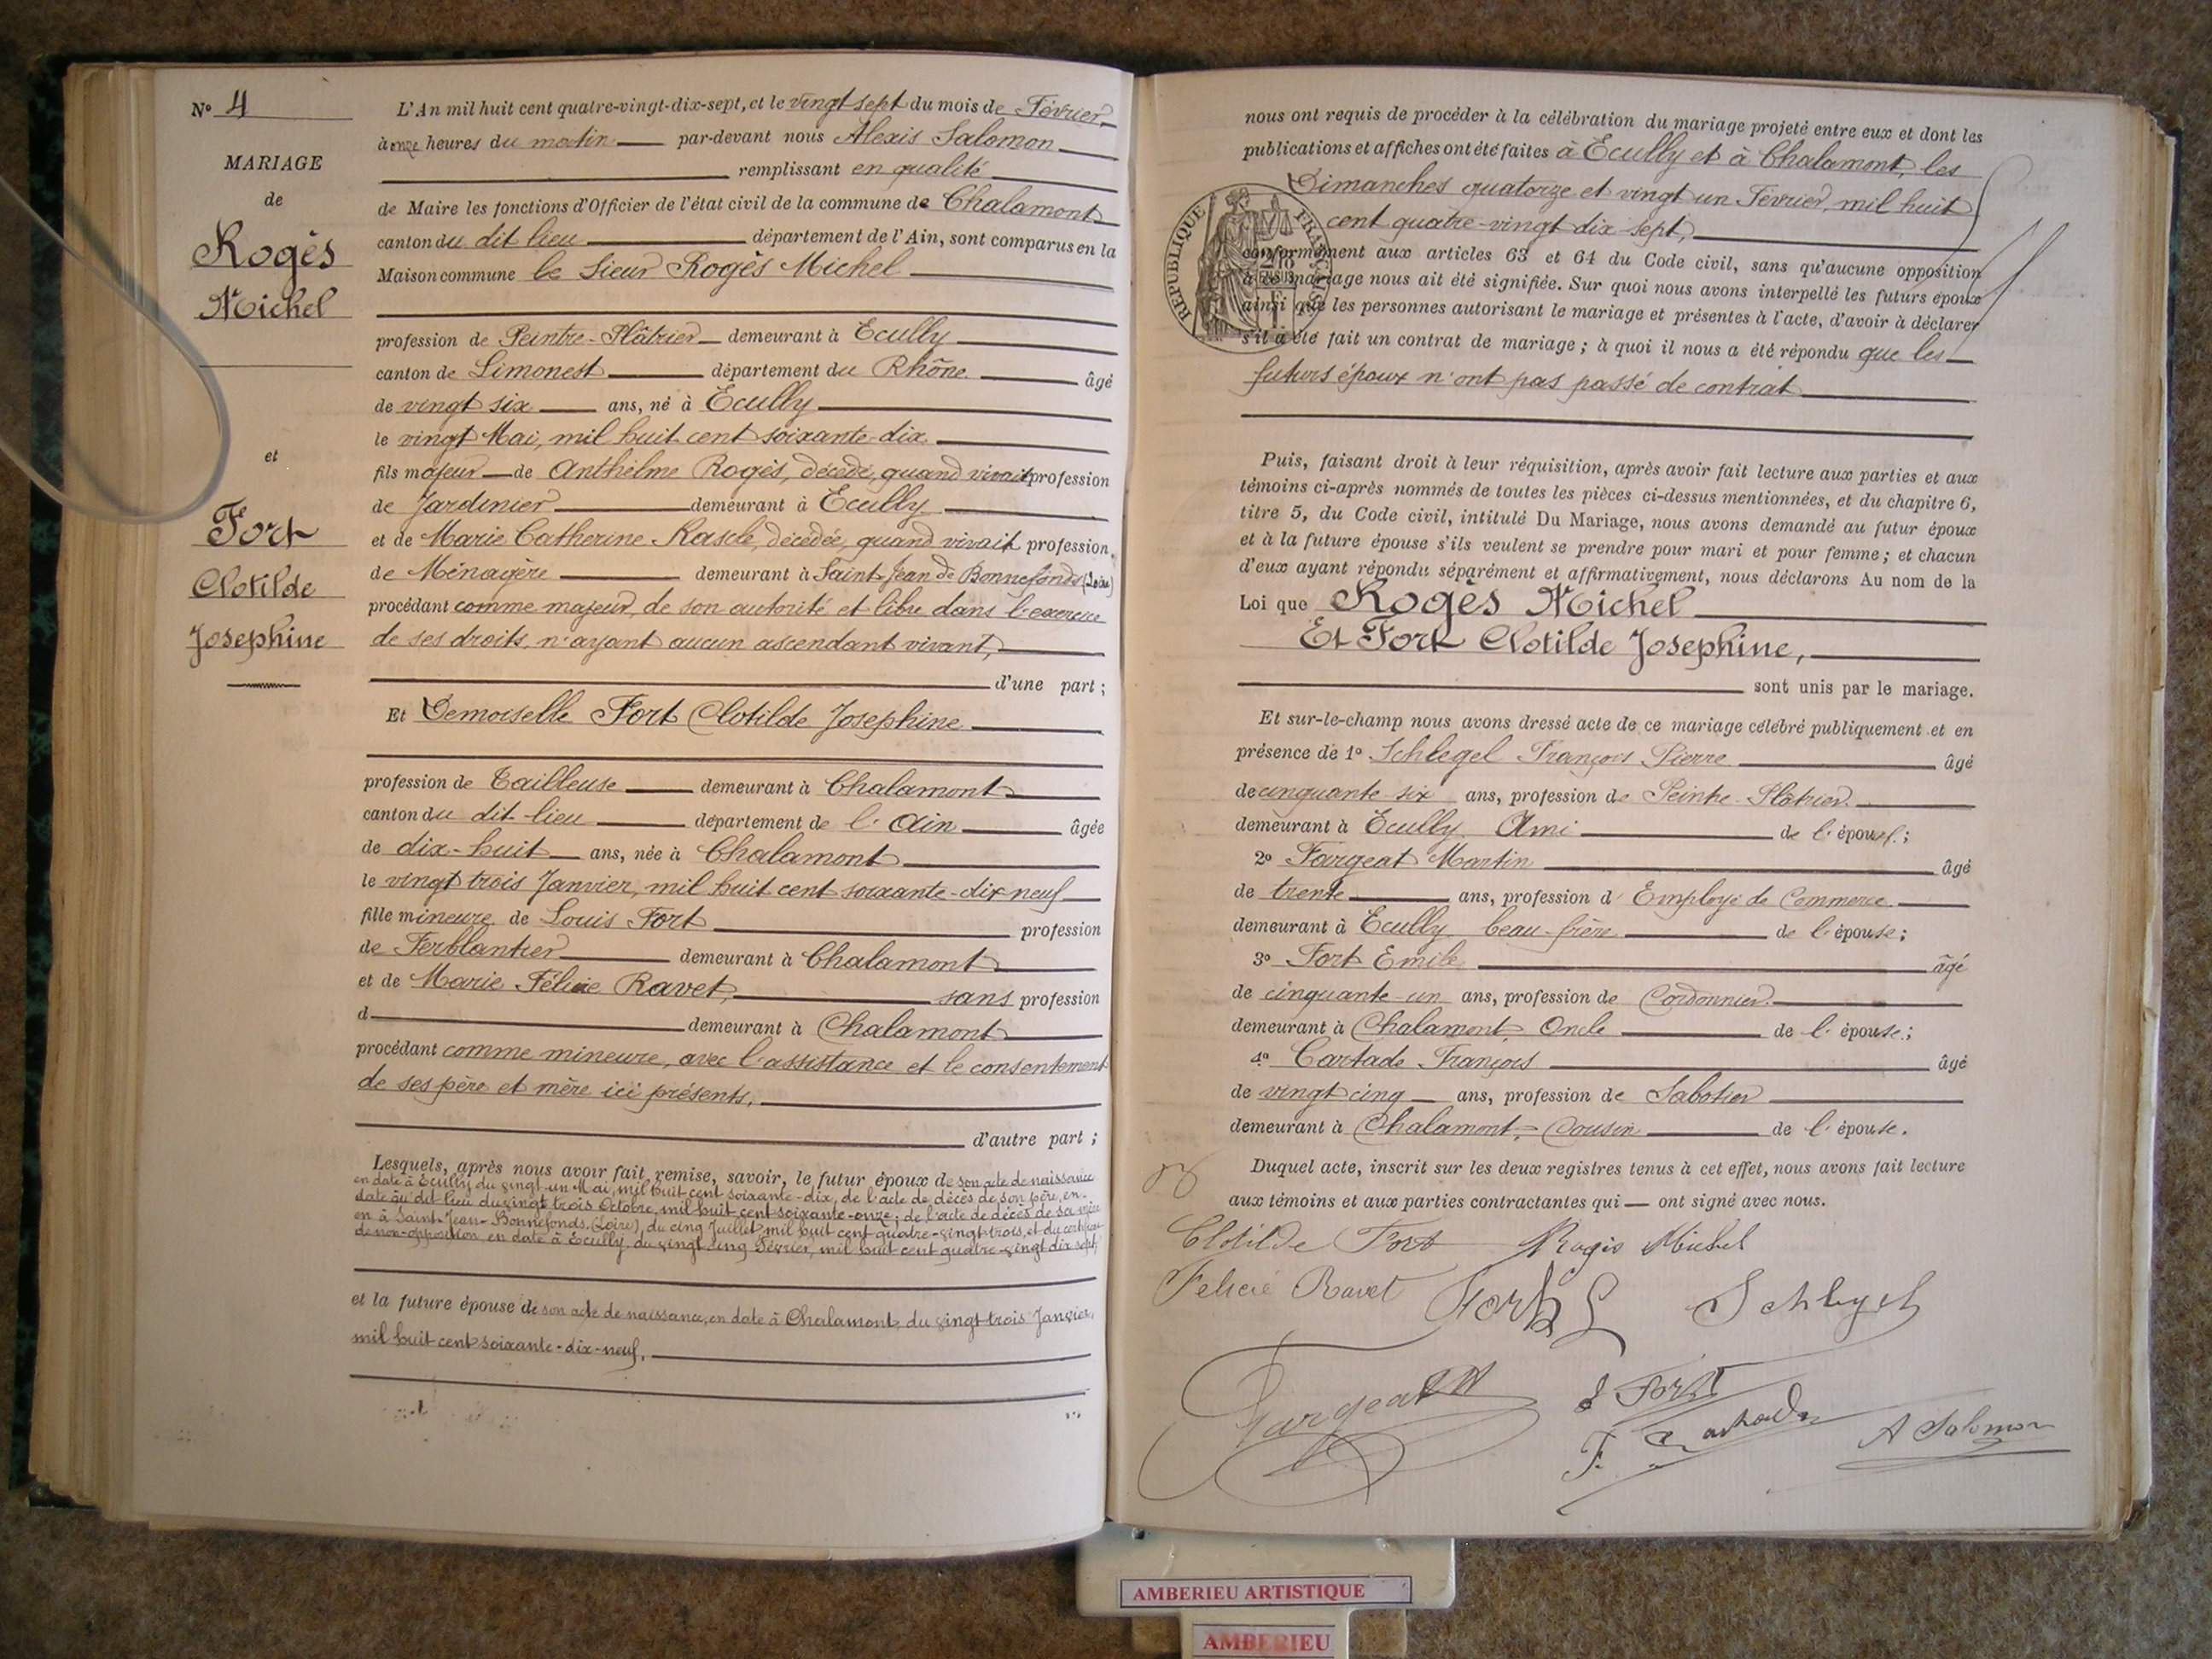 Nº 4
MARIAGE
de
Rogès
Michel
et
Fort
Clotilde
Josephine
L'An mil huit cent quatre-vingt-dix-sept, et le vingt sept du mois de Février
à onze heures du matin par-devant nous Alexis Salomon
remplissant en qualité
de Maire les fonctions d'Officier de l'état civil de la commune de Chalamont
canton du dit lieu département de l'Ain, sont comparus en la
Maison commune le Sieur Rogès Michel
profession de Peintre-Plâtrier demeurant à Ecully
canton de Limonest département du Rhône âgé
de vingt six ans, né à Ecully
le vingt Mai, mil huit cent soixante-dix
fils majeur de Anthelme Rogès, décédé, quand vivait profession
de Jardinier demeurant à Ecully
et de Marie Catherine Rascle, décédée, quand vivait profession
de Ménagère demeurant à Saint-Jean de Bonnefonds (Loire)
procédant comme majeur, de son autorité et libre dans l'exercice
de ses droits, n'ayant aucun ascendant vivant,
d'une part ;
Et Demoiselle Fort Clotilde Josephine
profession de Tailleuse demeurant à Chalamont
canton du dit lieu département de l'Ain âgée
de dix-huit ans, née à Chalamont
le vingt trois Janvier, mil huit cent soixante-dix neuf
fille mineure de Louis Fort profession
de Ferblantier demeurant à Chalamont
et de Marie Félicie Ravet, sans profession
d demeurant à Chalamont
procédant comme mineure, avec l'assistance et le consentement
de ses père et mère ici présents,
d'autre part ;
Lesquels, après nous avoir fait remise, savoir, le futur époux de son acte de naissance
en date à Ecully du vingt-un Mai, mil huit cent soixante-dix, de l'acte de décès de son père, en
date au dit lieu du vingt trois Octobre, mil huit cent soixante-onze ; de l'acte de décès de sa mère
en à Saint-Jean-Bonnefonds, (Loire), du cinq Juillet, mil huit cent quatre-vingt-trois, et du certificat
de non-opposition, en date à Ecully du vingt cinq Février, mil huit cent quatre-vingt dix sept,
et la future épouse de son acte de naissance, en date à Chalamont, du vingt-trois Janvier,
mil huit cent soixante-dix-neuf,
nous ont requis de procéder à la célébration du mariage projeté entre eux et dont les
publications et affiches ont été faites à Ecully et à Chalamont, les
Dimanches quatorze et vingt un Février, mil huit
cent quatre-vingt dix-sept,
REPUBLIQUE FRANÇAISE
conformément aux articles 63 et 64 du Code civil, sans qu'aucune opposition
à ce mariage nous ait été signifiée. Sur quoi nous avons interpellé les futurs époux
ainsi que les personnes autorisant le mariage et présentes à l'acte, d'avoir à déclarer
s'il a été fait un contrat de mariage ; à quoi il nous a été répondu que les
futurs époux n'ont pas passé de contrat
Puis, faisant droit à leur réquisition, après avoir fait lecture aux parties et aux
témoins ci-après nommés de toutes les pièces ci-dessus mentionnées, et du chapitre 6,
titre 5, du Code civil, intitulé Du Mariage, nous avons demandé au futur époux
et à la future épouse s'ils veulent se prendre pour mari et pour femme ; et chacun
d'eux ayant répondu séparément et affirmativement, nous déclarons Au nom de la
Loi que Rogès Michel
Et Fort Clotilde Josephine,
sont unis par le mariage.
Et sur-le-champ nous avons dressé acte de ce mariage célébré publiquement et en
présence de 1º Schlegel François Pierre âgé
de cinquante six ans, profession de Peintre-Plâtrier
demeurant à Ecully Ami de l'époux ;
2º Fargeat Martin âgé
de trente ans, profession d'Employé de Commerce
demeurant à Ecully beau-frère de l'épouse ;
3º Fort Emile âgé
de cinquante-un ans, profession de Cordonnier
demeurant à Chalamont, Oncle de l'épouse ;
4º Cartade François âgé
de vingt cinq ans, profession de Sabotier
demeurant à Chalamont, Cousin de l'épouse.
Duquel acte, inscrit sur les deux registres tenus à cet effet, nous avons fait lecture
aux témoins et aux parties contractantes qui ont signé avec nous.
Clotilde Fort Rogès Michel
Felicie Ravet Fort L Schlegel
Fargeat M E Fort
F. Cartade A Salomon
AMBERIEU ARTISTIQUE
AMBERIEU